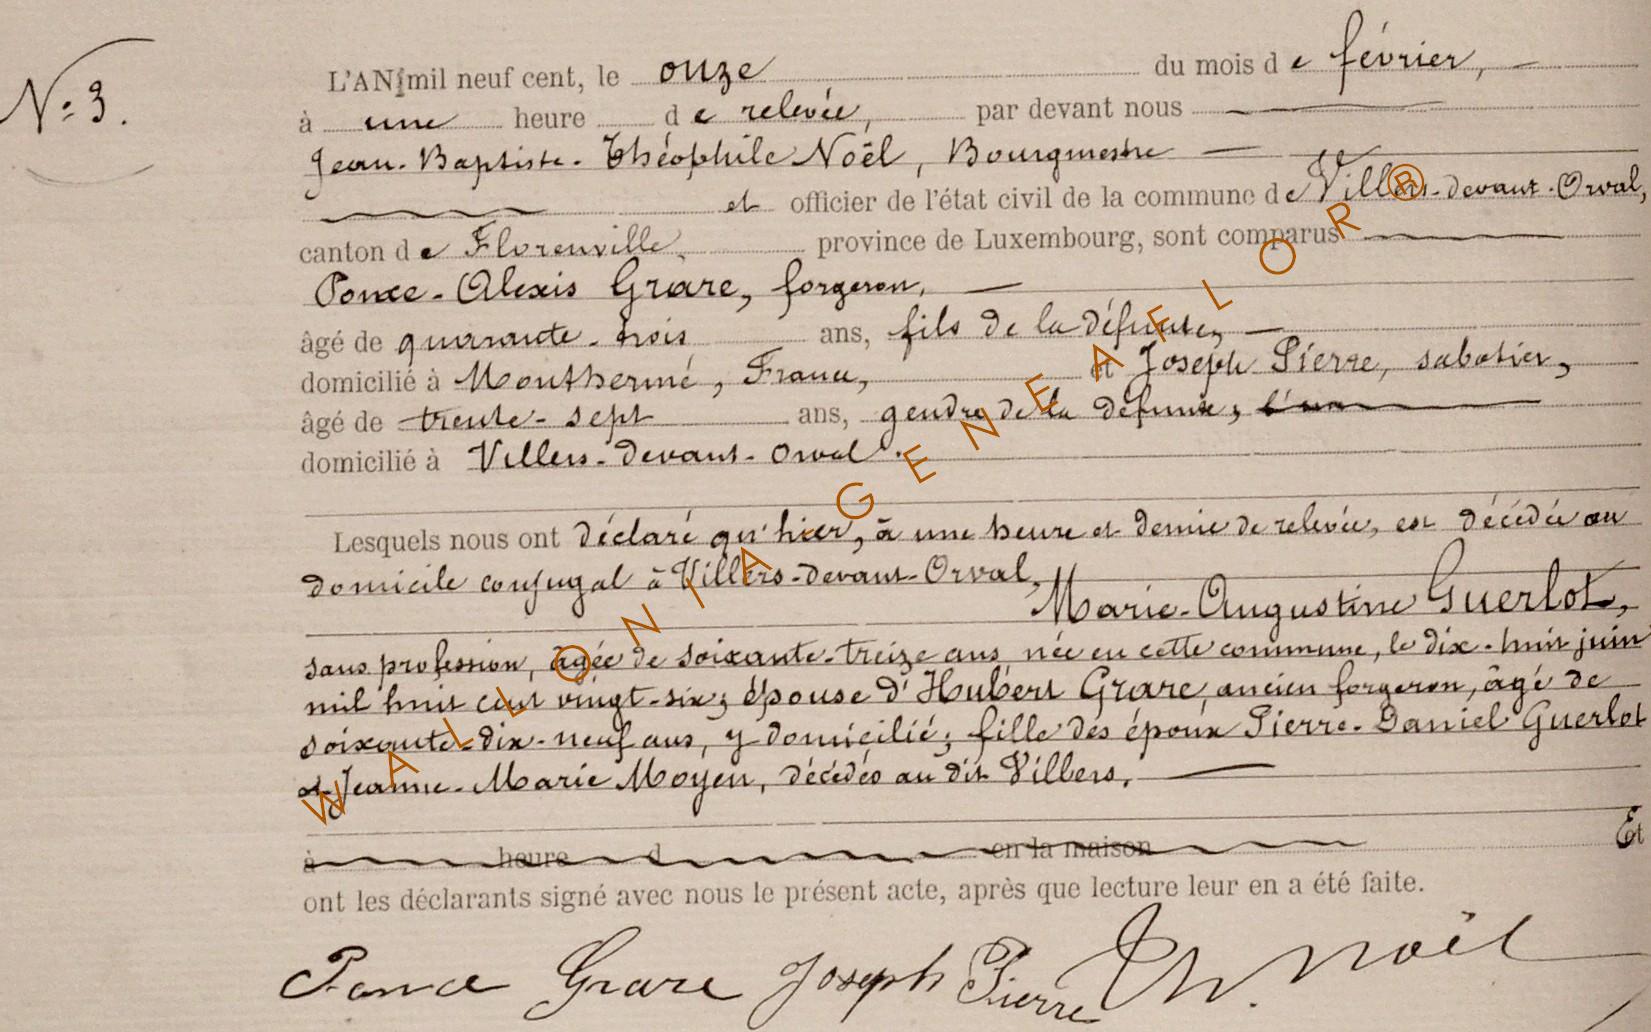 N.º 3.
L'AN mil neuf cent, le onze du mois de février,
à une heure de relevée, par devant nous
Jean-Baptiste-Théophile Noël, Bourgmestre
et officier de l'état civil de la commune de Villers-devant-Orval,
canton de Florenville, province de Luxembourg, sont comparus
Ponce-Alexis Grare, forgeron,
âgé de quarante-trois ans, fils de la défunte,
domicilié à Monthermé, France, et Joseph Pierre, sabotier,
âgé de trente-sept ans, gendre de la défunte,
domicilié à Villers-devant-Orval.
Lesquels nous ont déclaré qu'hier, à une heure et demie de relevée, est décédée au
domicile conjugal à Villers-devant-Orval,
Marie-Augustine Guerlot,
sans profession, âgée de soixante-treize ans, née en cette commune, le dix-huit juin
mil huit cent vingt-six; épouse d'Hubert Grare, ancien forgeron, âgé de
soixante-dix-neuf ans, y domicilié; fille des époux Pierre-Daniel Guerlot
et Jeanne-Marie Moyen, décédés au dit Villers.
à heure d en la maison Et
ont les déclarants signé avec nous le présent acte, après que lecture leur en a été faite.
Ponce Grare Joseph Pierre Th. Noël
WALLONIA GENEAFLOR®